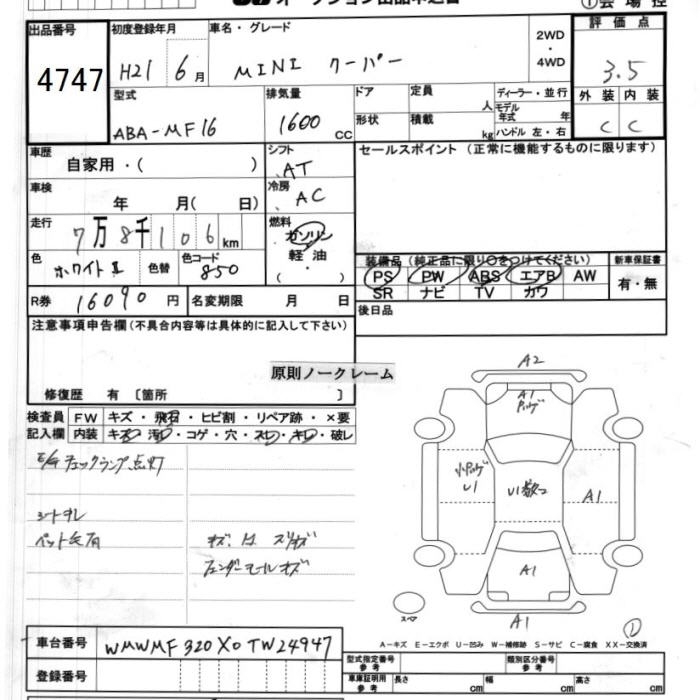 出品番号 初度登録年月 車名・グレード 2WD・4WD 評価点
4747 H21 6月 MINI クーパー 3.5
型式 排気量 ドア 定員 人 ディーラー・並行 外装 内装
ABA-MF16 1600cc 形状 積載 kg モデル年式 年 ハンドル 左・右 C C
車歴 自家用・( ) シフト AT セールスポイント (正常に機能するものに限ります)
車検 年 月( 日) 冷房 AC
走行 7万8千106km 燃料 ガソリン 軽油 ( )
色 ホワイトⅡ 色替 色コード 850
装備品 (純正品に限り○をつけてください) 新車保証書
PS PW ABS エアB AW 有・無
SR ナビ TV カワ
R券 16090円 名変期限 月 日 後日品
注意事項申告欄(不具合内容等は具体的に記入して下さい)
原則ノークレーム
修復歴 有 〔箇所 〕
検査員記入欄 FW キズ・飛石・ヒビ割・リペア跡・×要
内装 キズ・汚レ・コゲ・穴・スレ・キレ・破レ
E/Gチェックランプ点灯
シートヨレ
キズ、凹、スリキズ
フェンダーモールキズ
A2
A1
U1
A1
A1
A1
スペア
A-キズ E-エクボ U-凹み W-補修跡 S-サビ C-腐食 XX-交換済
車台番号 WMWMF320X0TW24947
登録番号
型式指定番号 参考 類別区分番号 参考
車庫証明用 参考 長さ cm 幅 cm 高さ cm